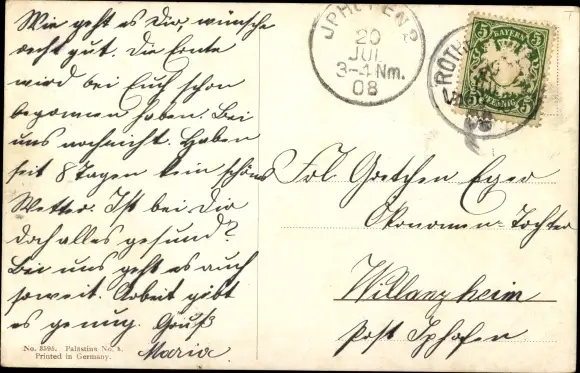 Wie geht es Dir, wünsche
recht gut. Die Ernte
wird bei Euch schon
begonnen haben. Bei
uns noch nicht. Haben
seit 8 Tagen kein schöns
Wetter. Ist bei Dir
doch alles gesund?
Bei uns geht es auch
soweit. Arbeit gibt
es genug. Gruß
Maria.
No. 5595. Palästina No. 5.
Printed in Germany.
IPHOFEN 2
20
JUL
3-4 Nm.
08
5 BAYERN 5
5 PFENNIG 5
ROTH
Frl. Gretchen Eger
Ökonomen-Tochter
Willanzheim
Post Iphofen